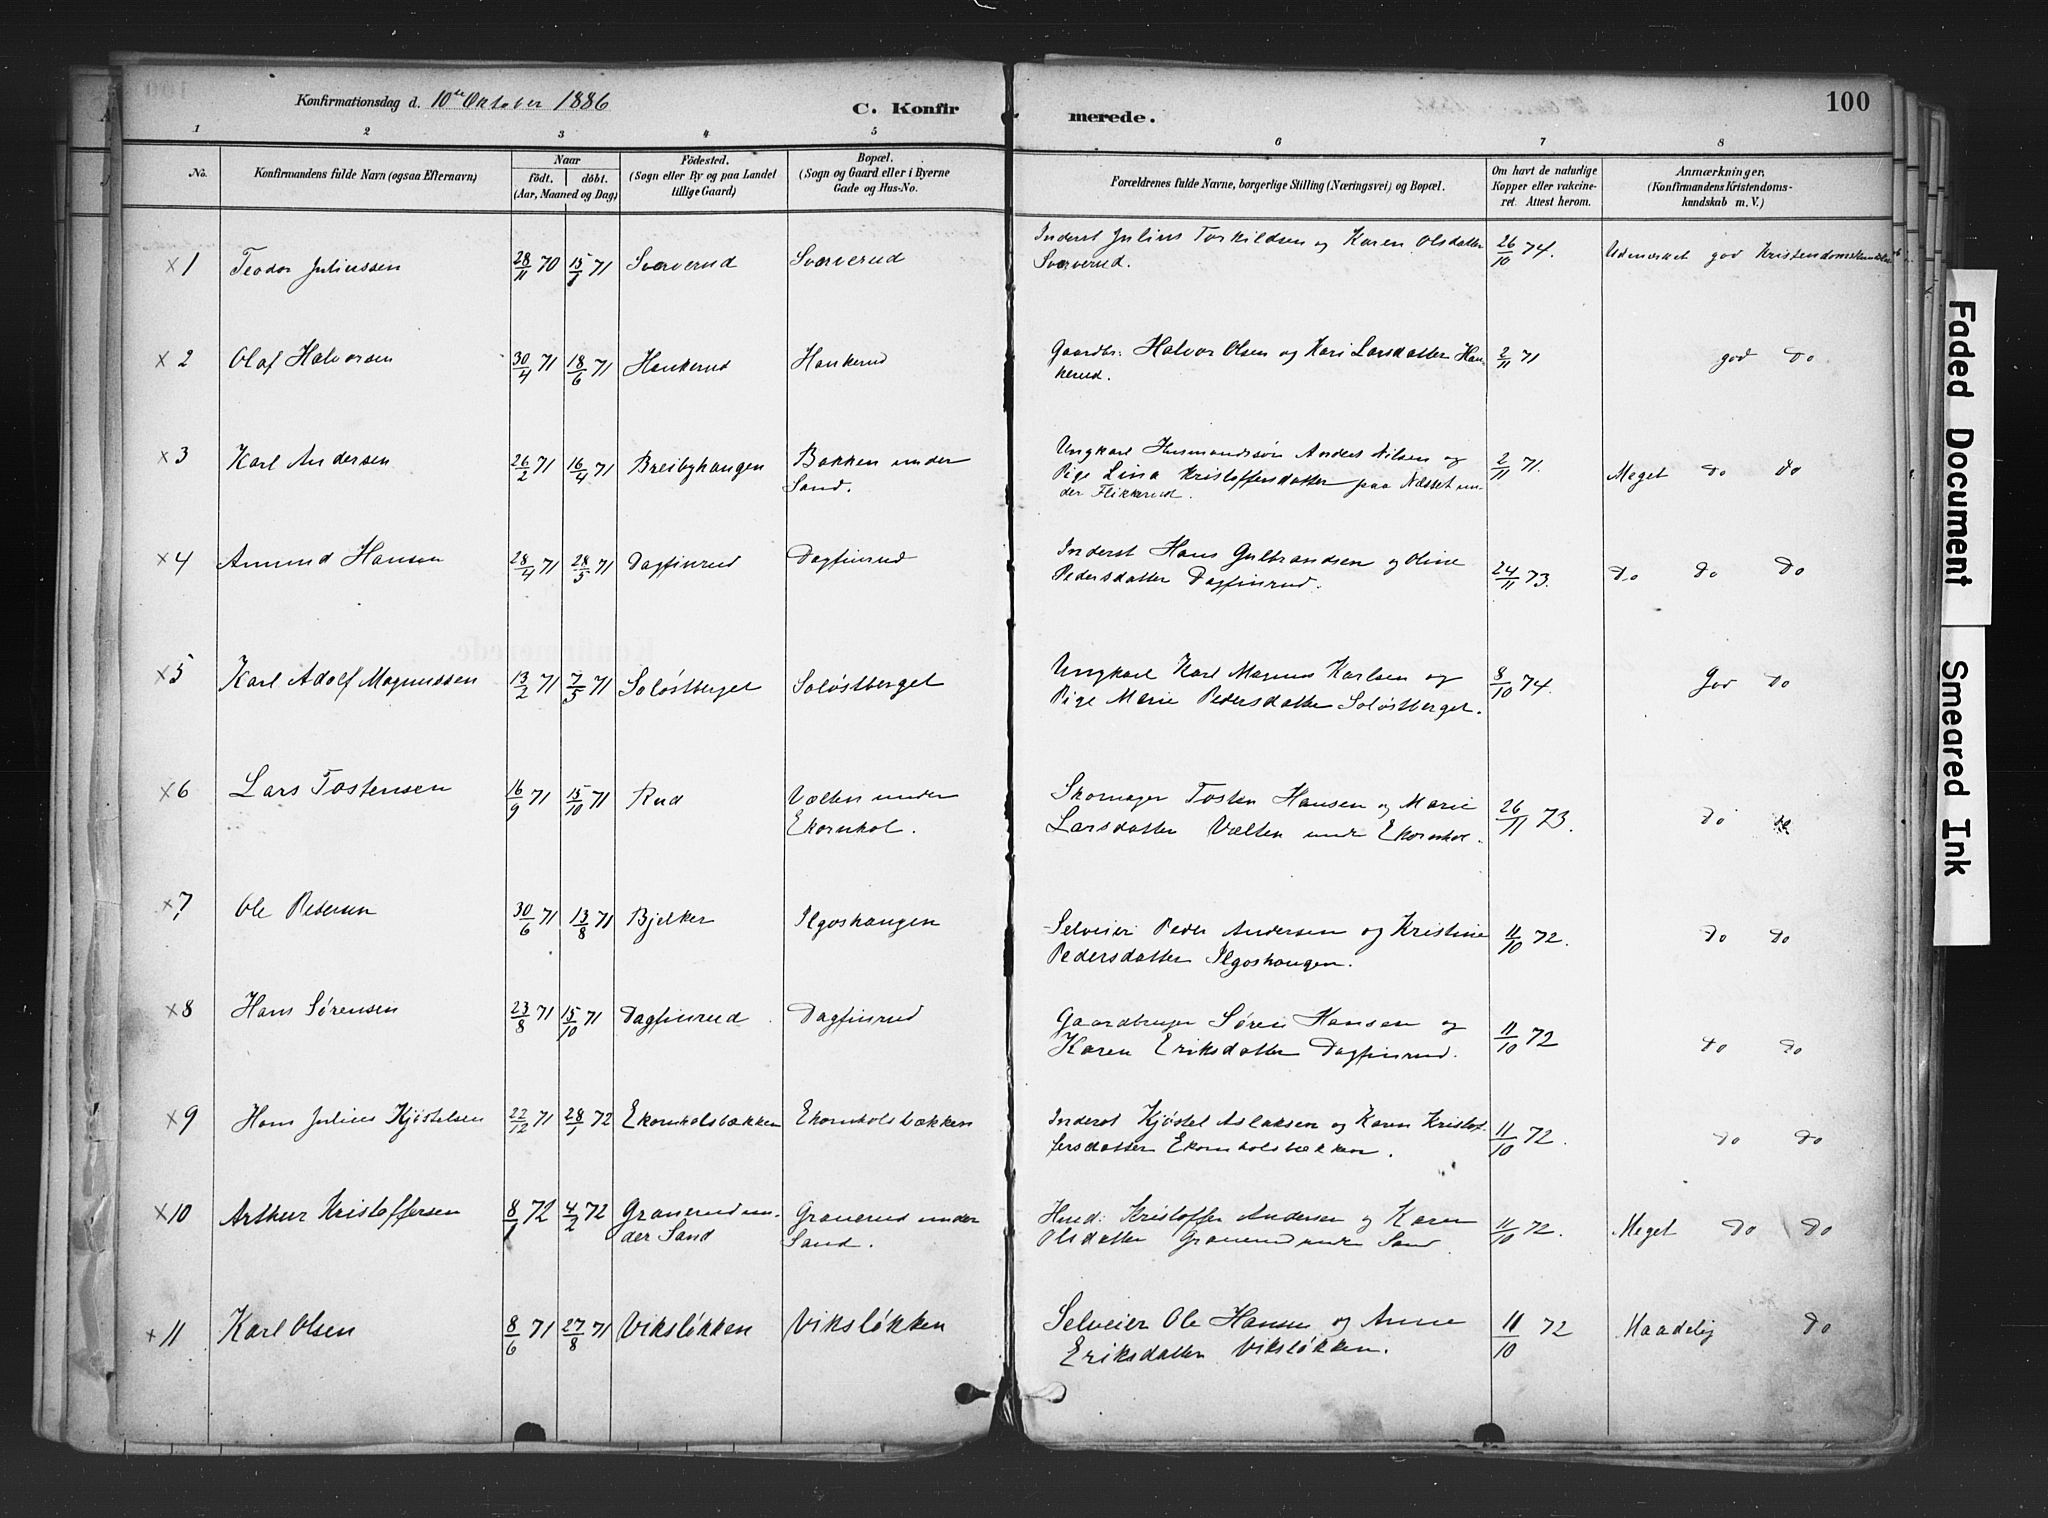 Konfirmationsdag d. 10de Oktober 1886
C. Konfirmerede.
100
1 2 3 4 5 6 7 8
No.
Konfirmandens fulde Navn (ogsaa Efternavn)
Naar
födt. döbt.
(Aar, Maaned og Dag)
Födested.
(Sogn eller By og paa Landet
tillige Gaard)
Bopæl.
(Sogn og Gaard eller i Byerne
Gade og Hus-No.
Forældrenes fulde Navne, borgerlige Stilling (Næringsvei) og Bopæl.
Om havt de naturlige
Kopper eller vakcine-
ret. Attest herom.
Anmærkninger,
(Konfirmandens Kristendoms-
kundskab m. V.)
×1 Teodor Juliussen 28/11 70 15/1 71 Sværverud Sværverud
Inderst Julius Torkildsen og Karen Olsdatter
Sværverud.
26/10 74. Udmærket god Kristendomskundskab
×2 Olaf Halvorsen 30/4 71 18/6 71 Haukerud Haukerud
Gaardbr: Halvor Olsen og Kari Larsdatter Hau-
kerud.
2/11 71 god do
×3 Karl Andersen 26/2 71 16/4 71 Breibyhaugen Bakken under
Sand.
Ungkarl Husmandssøn Anders Nilsen og
Pige Lina Kristoffersdatter paa Næsset un-
der Flikkerud.
2/11 71. Meget do do
×4 Amund Hansen 28/4 71 28/5 71 Dagfinrud Dagfinrud
Inderst Hans Gulbrandsen og Oline
Pedersdatter Dagfinrud.
24/11 73. do do do
×5 Karl Adolf Magnussen 13/2 71 7/5 71 Soløstberget Soløstberget
Ungkarl Karl Magnus Karlsen og
Pige Marie Pedersdatter Soløstberget.
8/10 74. God do
×6 Lars Tostensen 16/9 71 15/10 71 Rud Vælten under
Ekornhol.
Skomager Tosten Hansen og Marie
Larsdatter Vælten under Ekornhol.
26/11 73. do do
×7 Ole Pedersen 30/6 71 13/8 71 Bjelker Ilgoshaugen
Selveier Peder Andersen og Kristine
Pedersdatter Ilgoshaugen.
11/10 72. do do
×8 Hans Sørensen 23/8 71 15/10 71 Dagfinrud Dagfinrud
Gaardbruger Søren Hansen og
Karen Eriksdatter Dagfinrud.
11/10 72 do do
×9 Hans Julius Kjøstelsen 22/12 71 28/1 72 Ekornholsbækken Ekornholsbækken
Inderst Kjøstel Aslaksen og Karen Kristof-
fersdatter Ekornholsbækken.
11/10 72. do do
×10 Arthur Kristoffersen 8/1 72 4/2 72 Granerud un-
der Sand
Granerud under
Sand.
Husd: Kristoffer Andersen og Karen
Olsdatter Granerud under Sand.
11/10 72. Meget do do
×11 Karl Olsen 8/6 71 27/8 71 Viksløkken Viksløkken
Selveier Ole Hansen og Anne
Eriksdatter Viksløkken.
11/10 72 Maadelig do
Faded Document
Smeared Ink